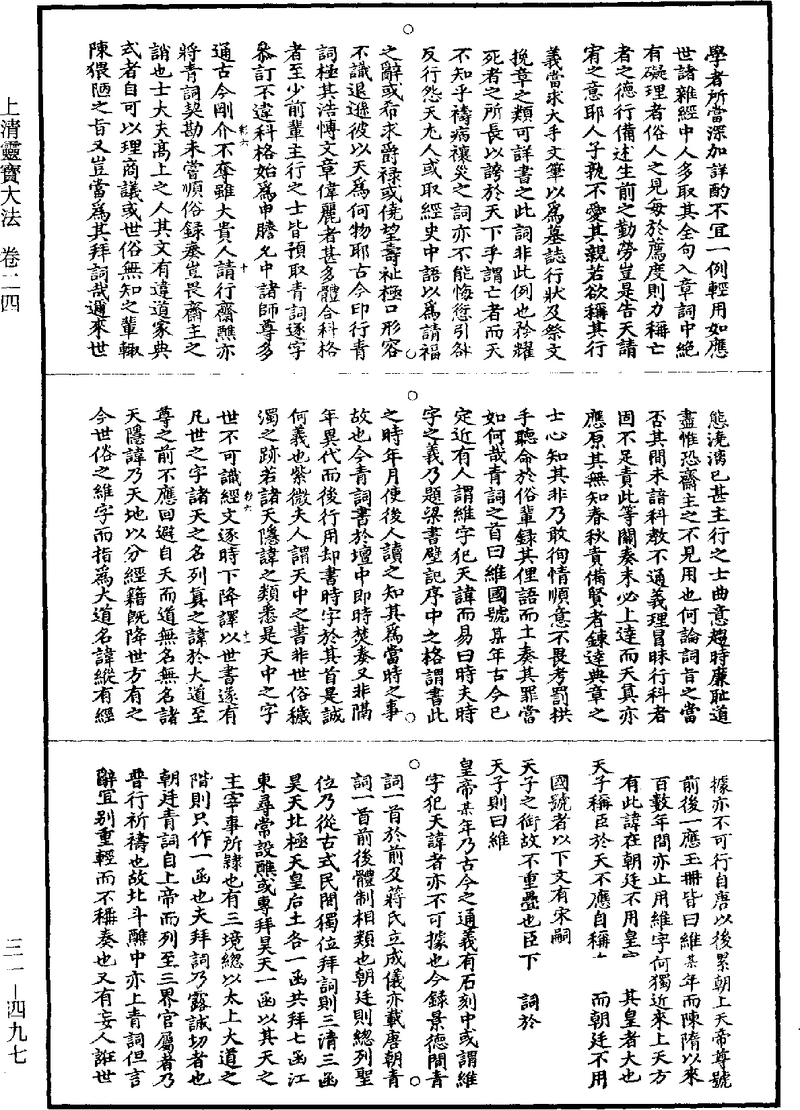 上清靈寶大法 卷二四
三一—四九七
學者所當深加詳酌不宜一例輕用如應
世諸雜經中人多取其全句入章詞中絕
有礙理者俗人之見每於薦度則力稱亡
者之德行備述生前之勤勞豈是告天請
宥之意耶人子孰不愛其親若欲稱其行
義當求大手文筆以爲墓誌行狀及祭文
挽章之類可詳書之此詞非此例也矜耀
死者之所長以誇於天下乎謂亡者而天
不知乎禱病禳災之詞亦不能悔愆引咎
反行怨天尤人或取經史中語以爲請福
之辭或希求爵祿或僥望壽祉極口形容
不識退遜彼以天爲何物耶古今印行青
詞極其浩博文章偉麗者甚多體合科格
者至少前輩主行之士皆預取青詞逐字
叅訂不違科格始爲申謄允中諸師尊多
通古今剛介不夸雖大貴人請行齋醮亦
將青詞契勘未嘗順俗録奏豈畏齋主之
誚也士大夫高上之人其文有違道家典
式者自可以理商議或世俗無知之輩輙
陳猥陋之旨又豈當爲其拜詞哉邇來世
態澆漓已甚主行之士曲意趨時廉恥道
盡惟恐齋主之不見用也何論詞旨之當
否其間未諳科教不通義理冒昧行科者
固不足責此等關奏未必上達而天真亦
應原其無知春秋責備賢者鍊達典章之
士心知其非乃敢徇情順意不畏考罰拱
手聽命於俗輩録其俚語而上奏其罪當
如何哉青詞之首曰維國號某年古今已
定近有人謂維字犯天諱而易曰時夫時
字之義乃題梁書壁記序中之格謂書此
之時年月使後人讀之知其爲當時之事
故也今青詞書於壇中即時焚奏又非隔
年異代而後行用却書時字於其首是誠
何義也紫微夫人謂天中之書非世俗穢
濁之跡若諸天隱諱之類悉是天中之字
世不可識經文逐時下降譯以世書遂有
凡世之字諸天之名列真之諱於大道至
尊之前不應回避自天而道無名無名諸
天隱諱乃天地以分經籍旣降世方有之
今世俗之維字而指爲大道名諱縱有經
據亦不可行自唐以後累朝上天帝尊號
前後一應玉冊皆曰維某年而陳隋以來
百數年間亦止用維字何獨近來上天方
有此諱在朝廷不用皇 其皇者大也
天子稱臣於天不應自稱 而朝廷不用
國號者以下文有宋嗣
天子之銜故不重疊也臣下 詞於
天子則曰維
皇帝某年乃古今之通義有石刻中或謂維
字犯天諱者亦不可據也今録景德間青
詞一首於前及蔣氏立成儀亦載唐朝青
詞一首前後體制相類也朝廷則總列聖
位乃從古式民間獨位拜詞則三清三函
昊天北極天皇后土各一函共拜七函江
東尋常設醮或專拜昊天一函以其天之
主宰事所隸也有三境總以太上大道之
階則只作一函也夫拜詞乃露誠切者也
朝廷青詞自上帝而列至三界官屬者乃
普行祈禱也故北斗醮中亦上青詞但言
辭宜別重輕而不稱奏也又有妄人誑世